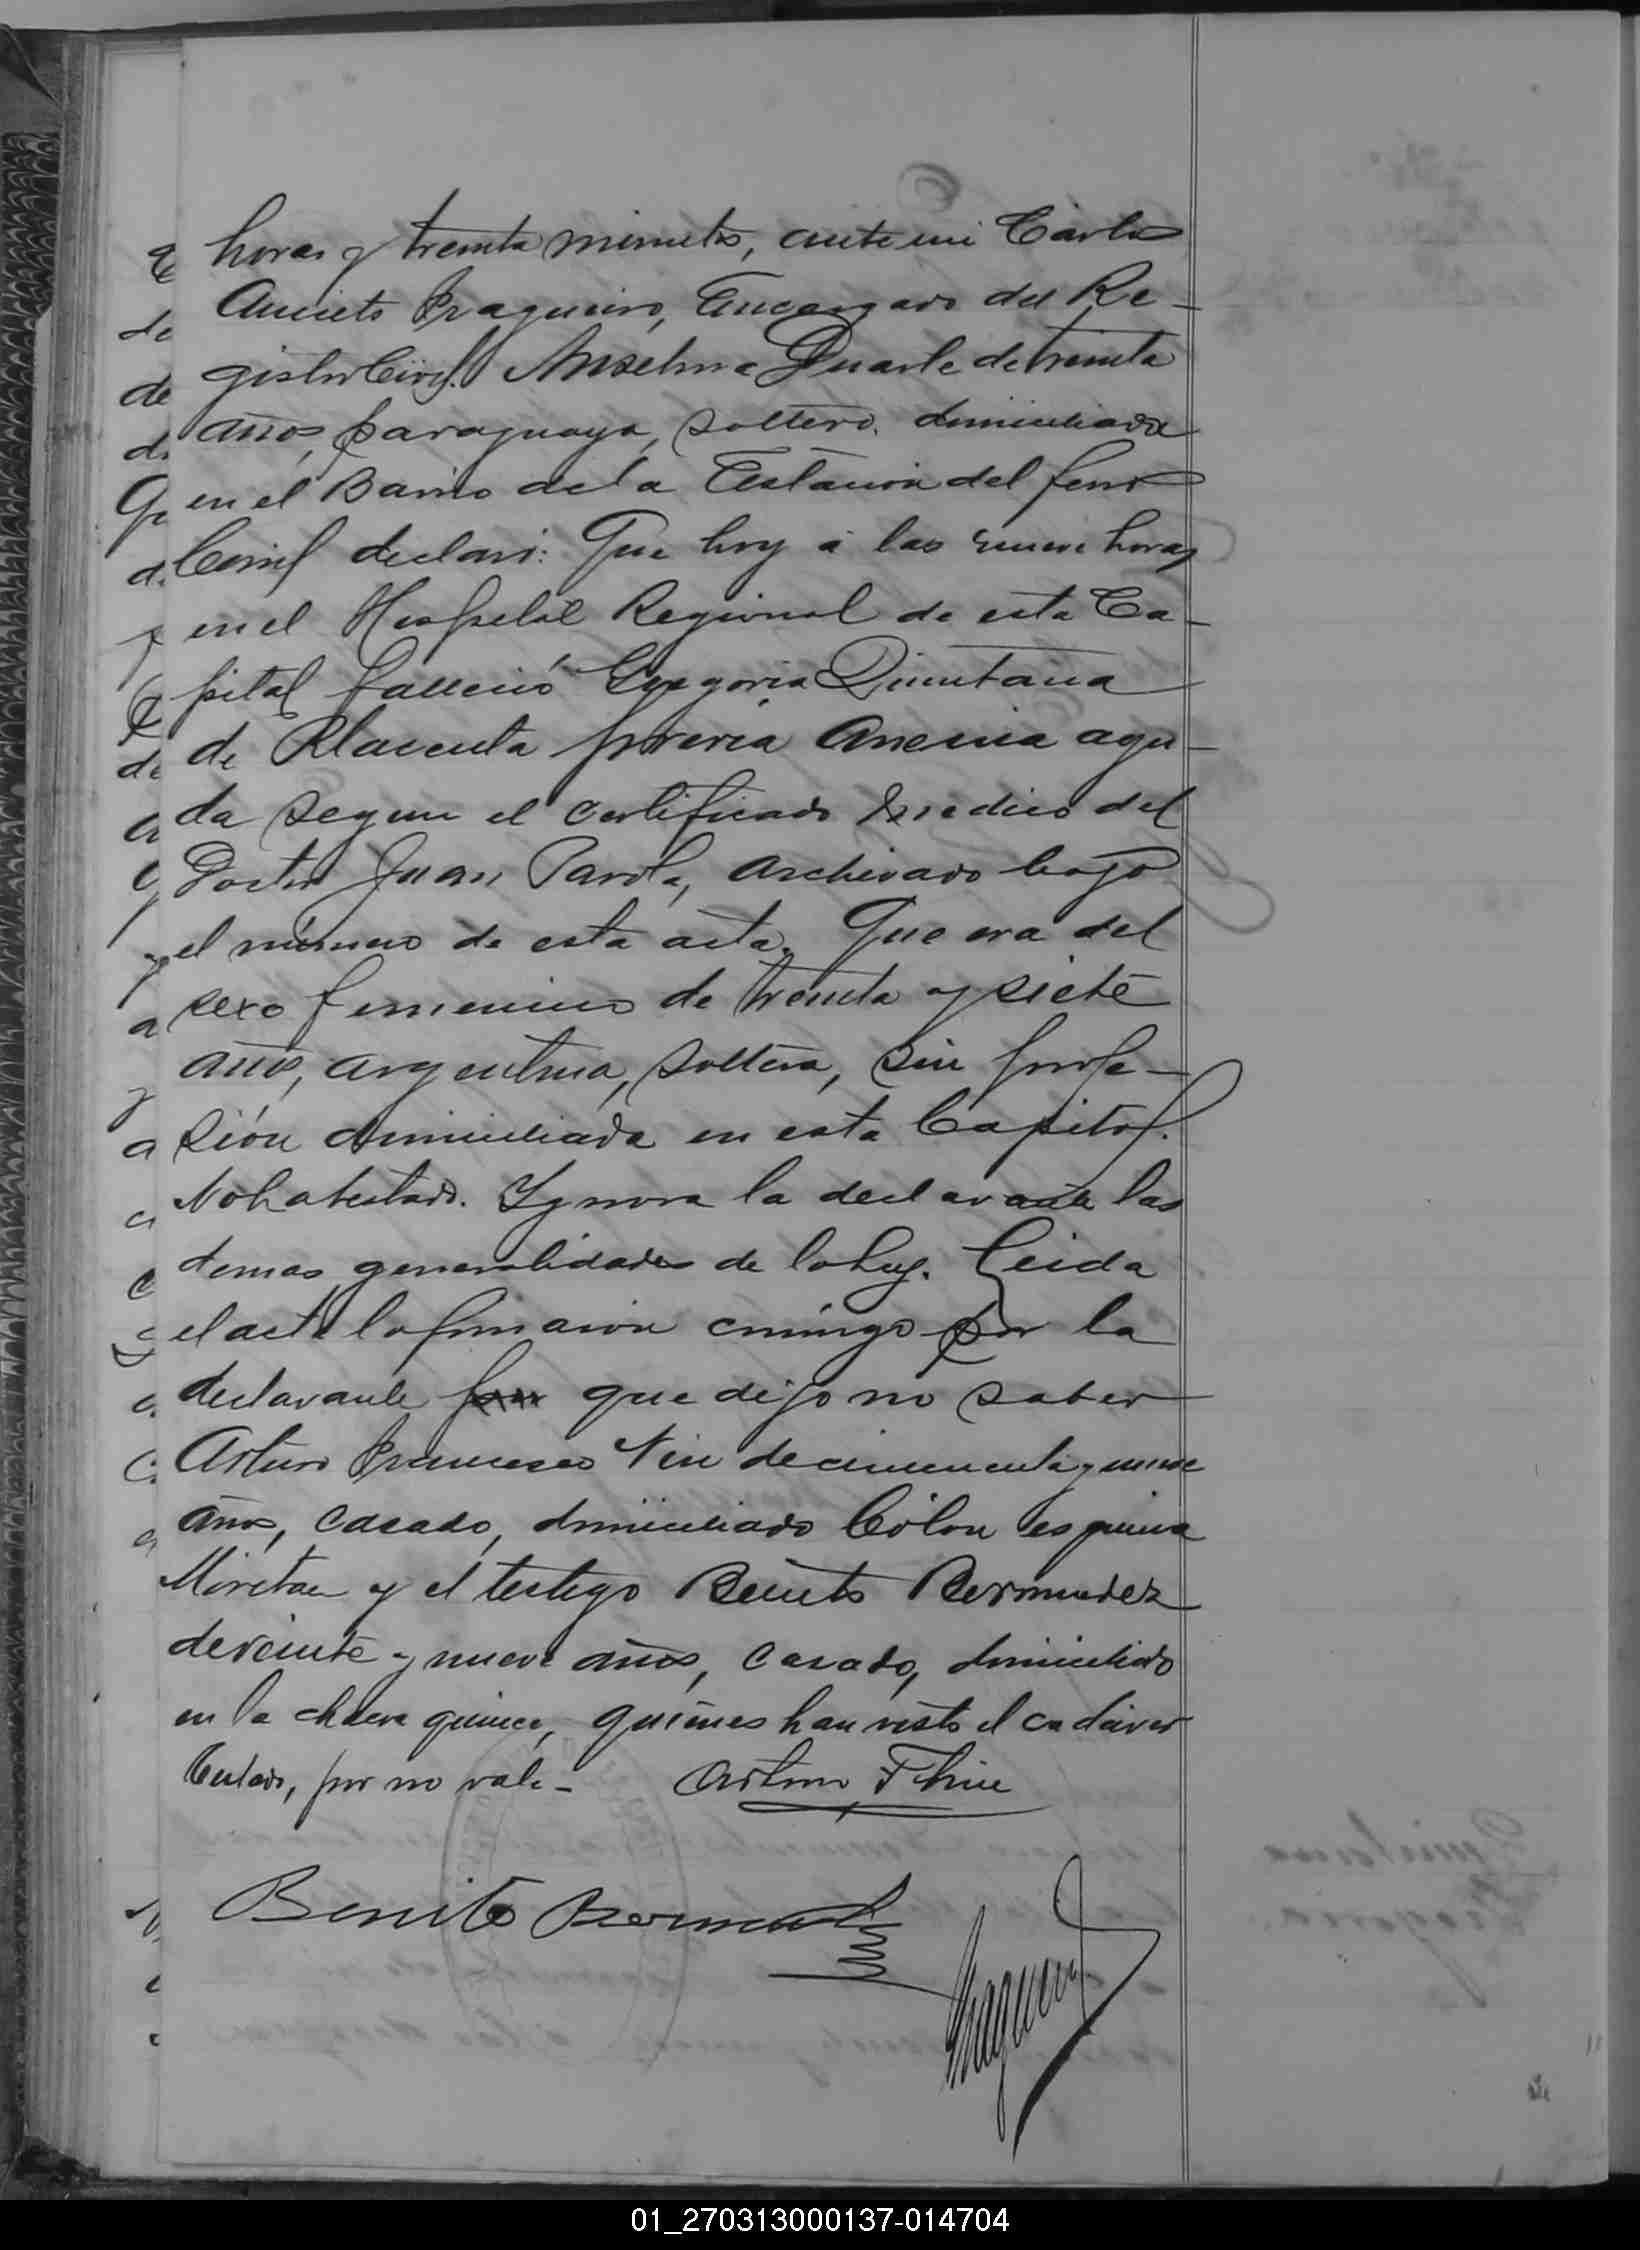 horas y treinta minutos, ante mi Cárlos
Aniceto Fragueiro, Encargado del Re-
gistro Civil Anselma Duarte de treinta
años, paraguaya, soltera, domiciliada
en el Barrio de la Estacion del ferro
Carril declaró: Que hoy á las nueve horas
en el Hospital Regional de esta Ca-
pital falleció Gregoria Quintana
de Placenta previa Anemia agu-
da segun el certificado medico del
Doctor Juan Parola, archivado bajo
el número de esta acta. Que era del
sexo femenino de treinta y siete
años, argentina, soltera, sin profe-
sión domiciliada en esta Capital.
No ha testado. Ygnora la declarante las
demas generalidades de la ley. Leida
el acta la firmaron conmigo por la
declarante por que dijo no saber
Arturo Francisco de cincuenta y nueve
años, casado, domiciliado Cólon esquina
y el testigo Benito Bermudez
de veinte y nueve años, casado, domiciliado
en la chacra quince, quienes han visto el cadáver
Testado, por no vale-
Arturo F
Benito Bermudez